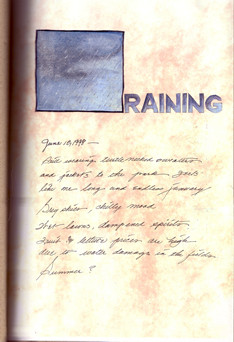 RAINING
June 18, 1998 —
Still wearing turtle necked sweaters
and jackets to the park. Feels
like one long and endless January
Grey skies, chilly mood
Wet lawns, dampened spirits
Fruit & lettuce prices are high
due to water damage in the fields.
Summer?